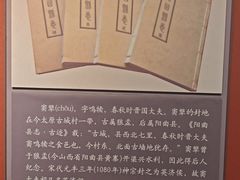 窦犨(chōu)，字鸣犊，春秋时晋国大夫。窦犨的封地
在今太原古城村一带，古属狼孟，后属阳曲县。《阳曲
县志·古迹》载："古城，县西北七里，春秋时晋大夫
窦鸣犊之食邑也，今村东、北面古墙地犹存。"窦犨曾
于狼孟(今山西省阳曲县黄寨)开渠兴水利，因此得后人
纪念。宋代元丰三年(1080年)神宗封之为英济侯，故窦